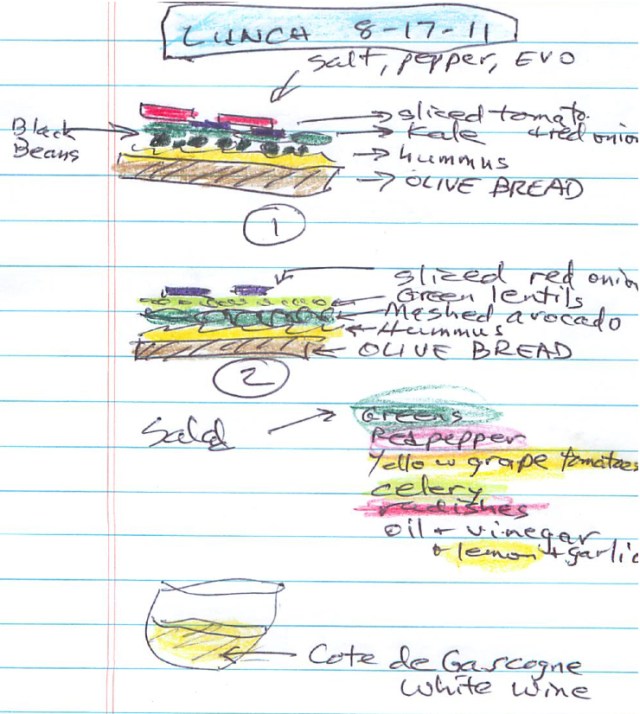 LUNCH 8-17-11
Salt, pepper, EVO
sliced tomato
Black Beans
Kale + red onion
hummus
OLIVE BREAD
1
sliced red onion
Green lentils
Mashed avocado
Hummus
OLIVE BREAD
2
Salad
Greens
Red pepper
Yellow grape tomatoes
celery
radishes
oil + vinegar
+ lemon + garlic
Cote de Gascogne
White wine